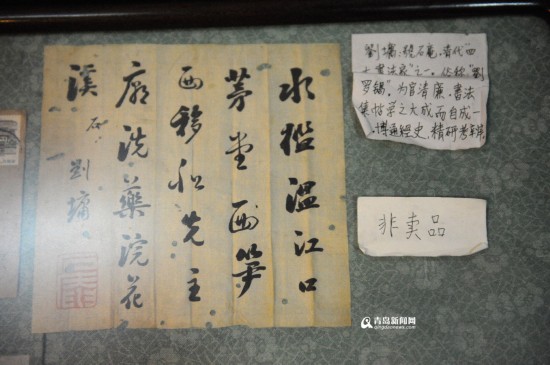 水檻溫江口
茅堂西笋
西移船先主
廟洗藥浣花
溪 石 劉墉
劉墉:號石庵,清代"四
大書法家"之一。俗称"劉
罗鍋"为官清廉,書法
集帖学之大成而自成一
博通經史,精研考
非卖品
青岛新闻网
qingdaonews.com